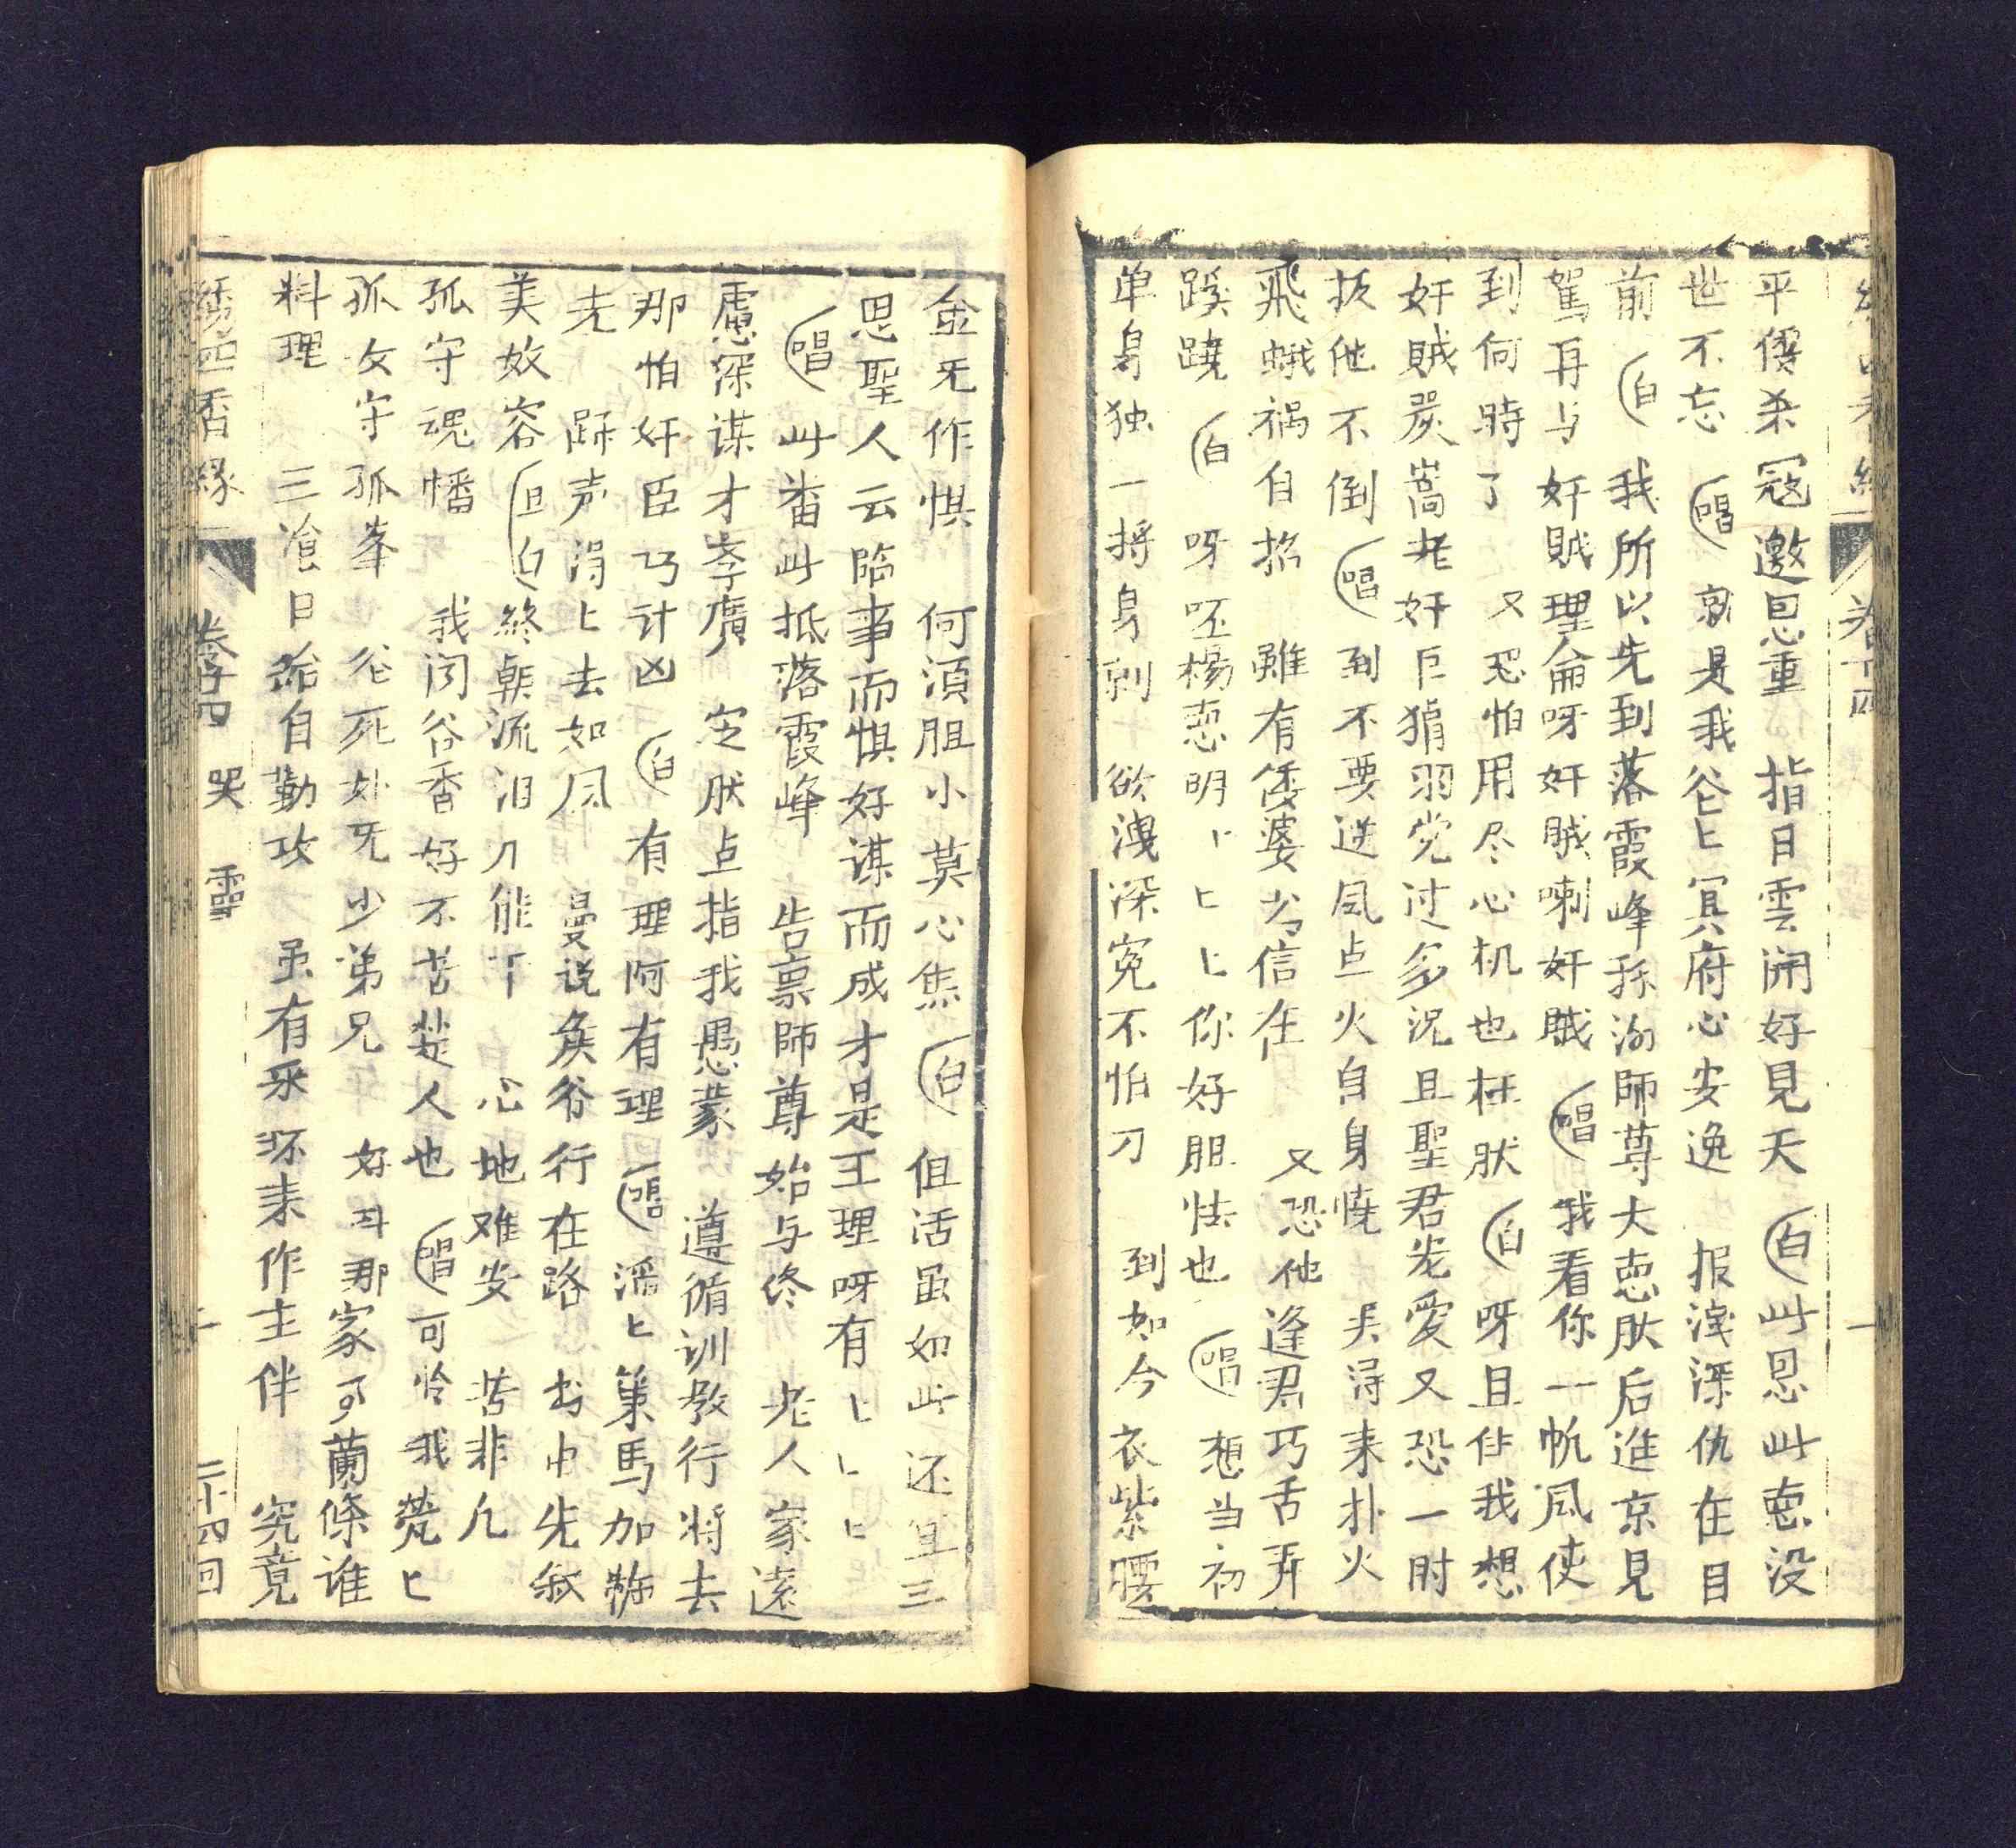 平倭杀寇邀恩重　指日雲開好見天（白）此恩此恵没
世不忘（唱）就是我爷匕冥府心安逸　报浅深仇在目
前（白）我所以先到落霞峰孫渤師尊大恵肰后進京見
駕再与奸贼理侖呀奸贼喇奸贼（唱）我看你一帆风使
到何時了　又恐怕用尽心机也枉肰（白）呀且住我想
奸賊炭嵩老奸巨猾羽党过多况且聖君光愛又恐一时
扳他不倒（唱）到不要送风点火自身燒　失得来扑火
飛蛾祸自招　雖有倭婆为信在　又恐他逢君巧舌弄
蹊蹺（白）呀呸楊恵明匕匕你好胆怯也（唱）想当初
单身独一捋身剥　欲洩深冤不怕刀　到如今衣紫腰
金旡作惧　何須胆小莫心焦（白）但活虽如此还且三
思聖人云臨事而惧好谋而成才是王理呀有匕匕匕
（唱）此番此抵落霞峰　告禀師尊始与终　老人家遠
慮深谋才孝廣　定肰点指我愚蒙　遵循训教行将去
那怕奸臣巧计凶（白）有理阿有理（唱）滛匕策馬加鞭
走　蹄声得匕去如风　曼说矦爷行在路　书中先叙
美姣容（旦白）終朝流泪几能干　心地难安苦非凡
孤守魂幡　我闵谷香好不苦楚人也（唱）可怜我茕匕
孤女守孤峯　爷死娘旡少弟兄　好耳那家可蘭條谁
料理　三飡日給自勤攻　虽有乑环来作主伴　究竟
綉巴香緣　卷十四　哭靈　二　二十四回